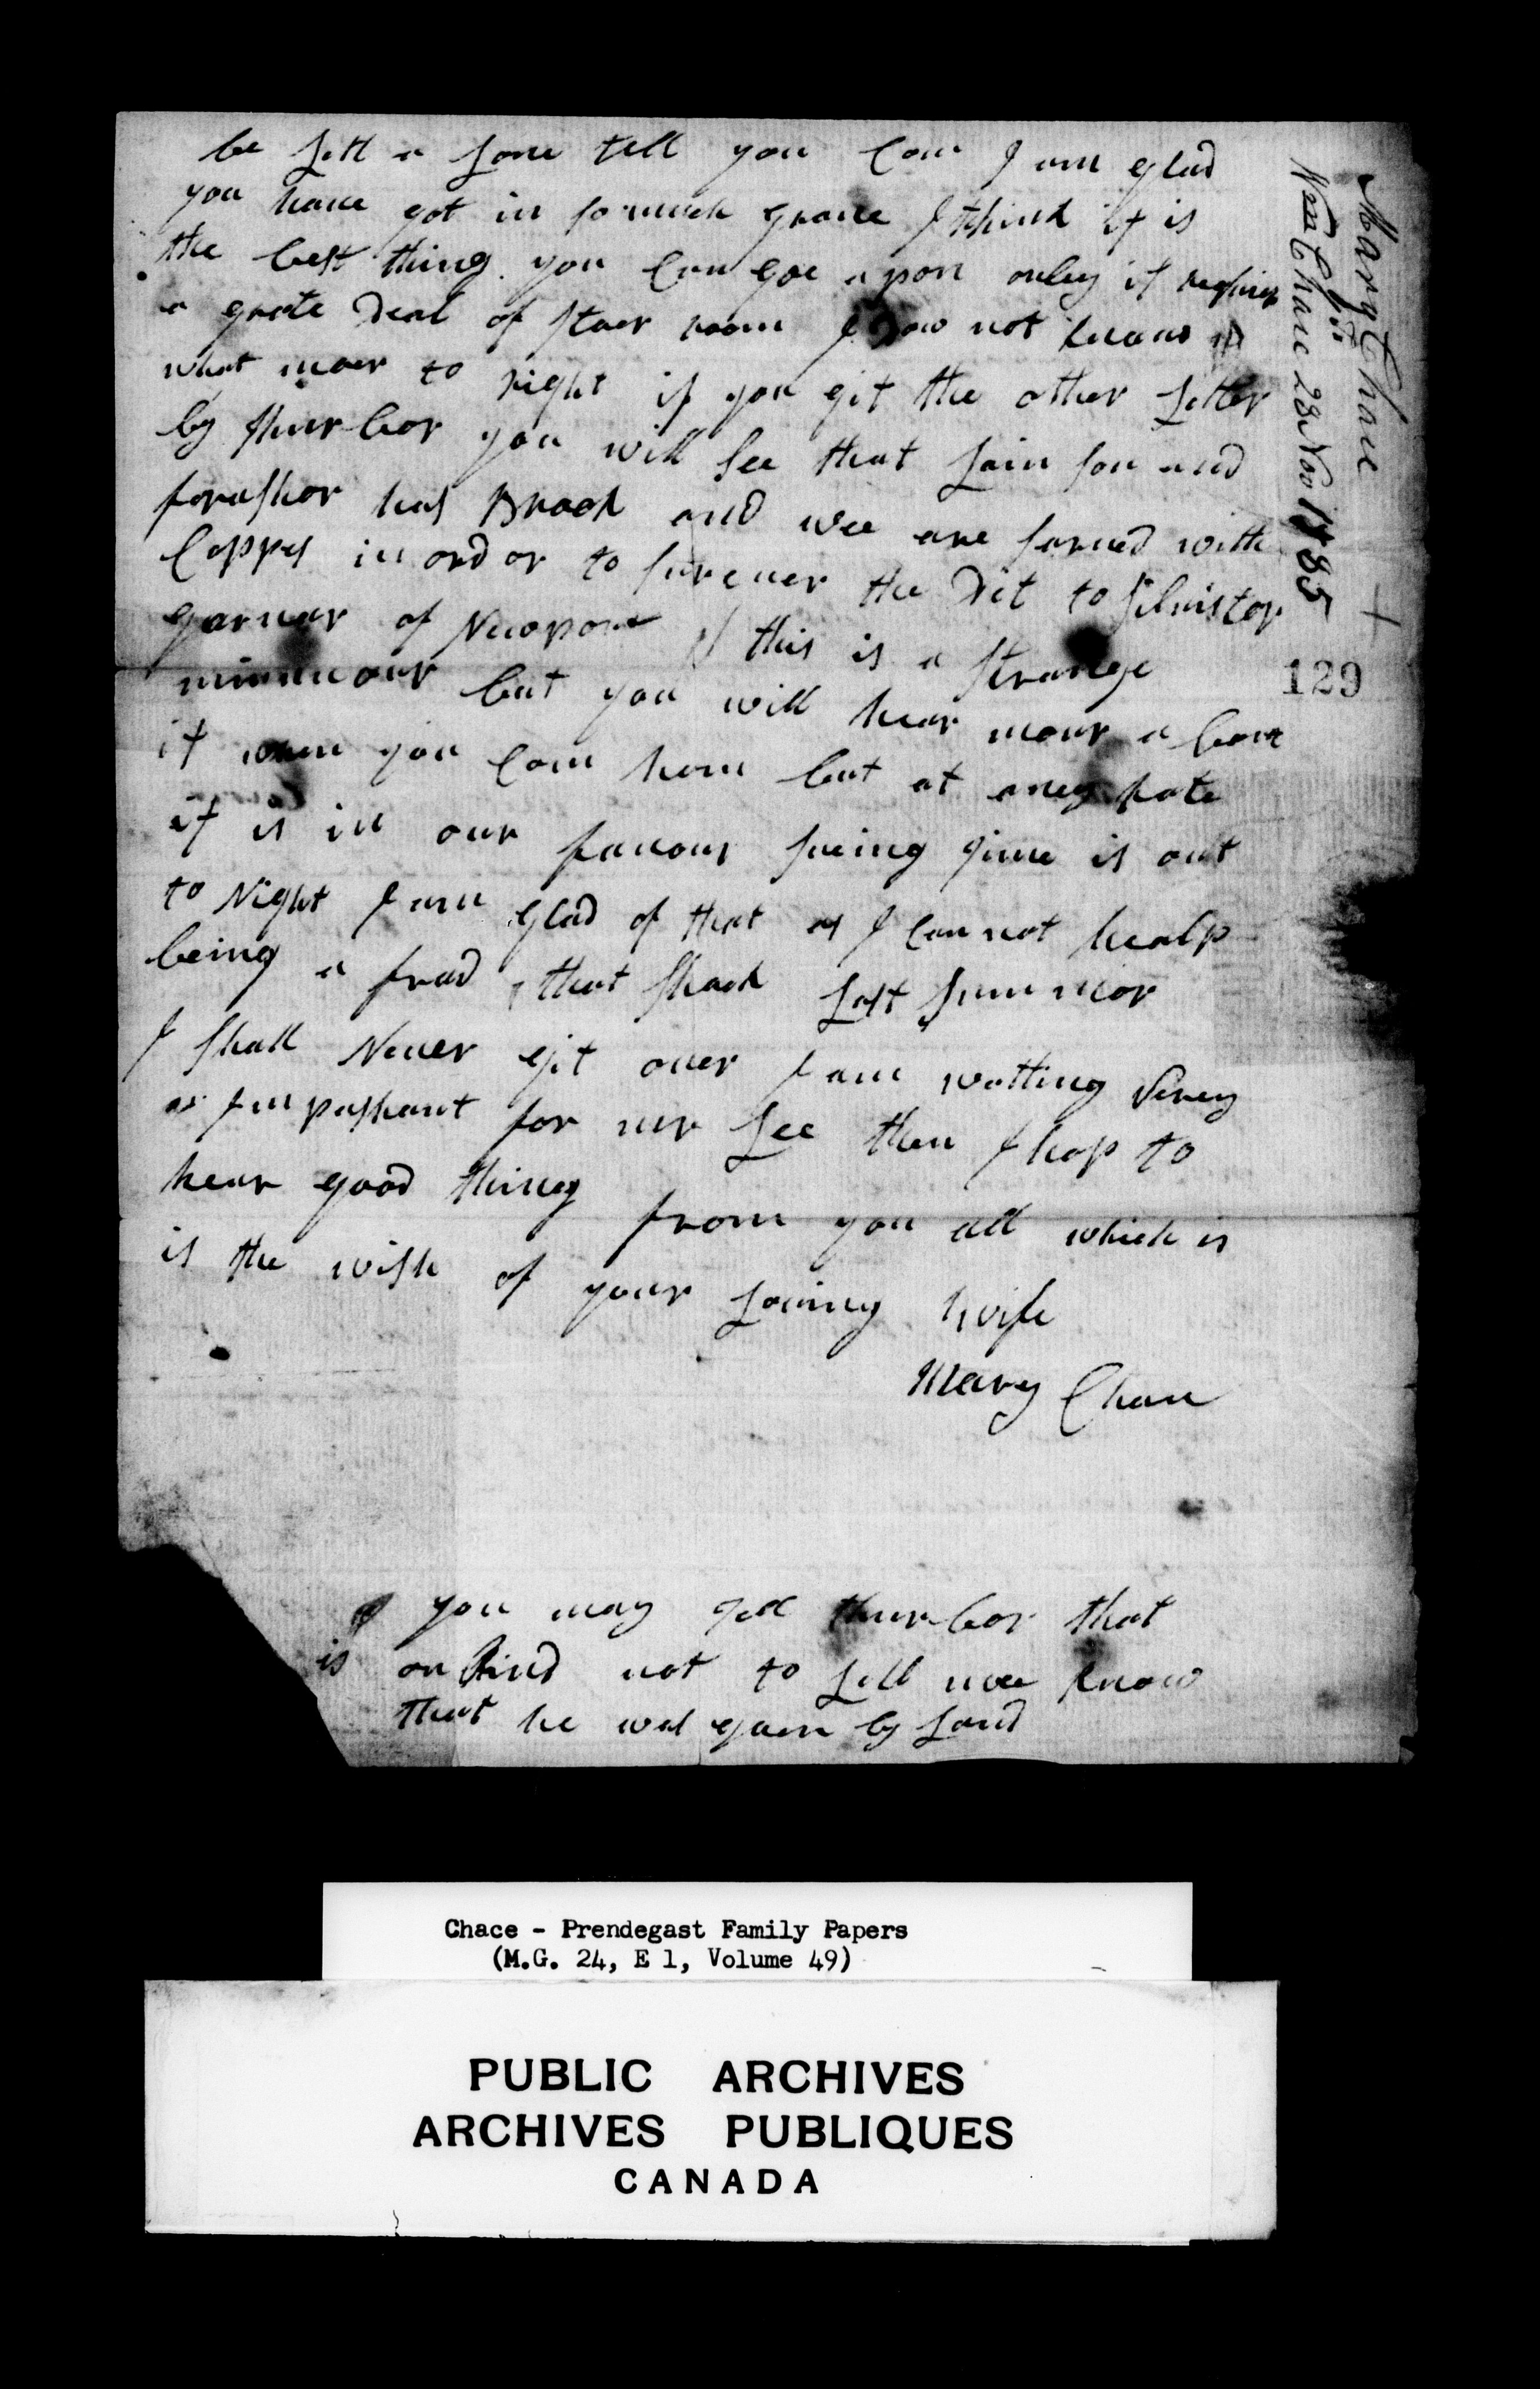 be Lett a Lone tell you Com I am glad
you have got in so much grane I think it is
the best thing you Can goe upon onley it requires
a grate Deal of Stoer room I Dow not know
what moer to right if you git the other Letter
by thurbor you will See that Lain son and
forashor has Brook and wee are sarved with
Coppys in ordor to the Det to Silvistor
garnar of Newport this is a Strange
but you will hear mour a bout
it when you Com hom but at aney rate
it is in our favour seeing time is out
to Night I am glad of that as I Can not healp
being a frad that Shock Last Summor
I Shall Never git over I am watting Verey
as Impashant for mr Lee then I hop to
hear good thing from you all which is
is the wish of your Loving Wife
Mary Chace
you may tell thurbor that
is onkind not to Lett mee know
that he was gown by Land
Mary Chace
to
Wm Chace 28 Nov 1785
129
Chace - Prendegast Family Papers
(M.G. 24, E 1, Volume 49)
PUBLIC ARCHIVES
ARCHIVES PUBLIQUES
CANADA